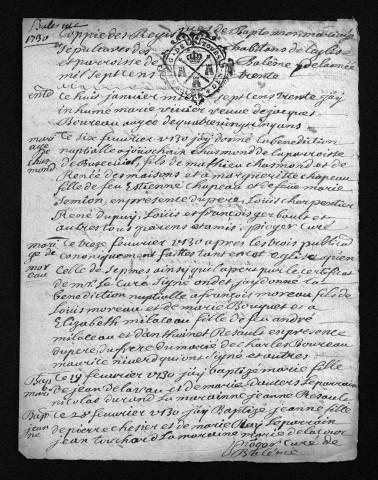 Balesme
1730
Coppie des Registres de Baptesmes mariages
Sepultures des habitans de la ville
et parroisse de Balesme de l'année
mil sept cens trente
ente
Le huit janvier mil sept cens trente j'ay
inhumé marie vivier veuve de jacques
Boureau aagée de quatre vingts ans
mari
Le six feuvrier 1730 j'ay donné la benediction
nuptialle a joachim chasmond de la parroisse
de Buseuil, fils de mathieu chasmond et de
Renée des maisons et a margueritte chapeau
fille de feu Estienne chapeau et de feue marie
Semion, en presence du pere, Louis charpentier
René dupuy, Louis et françois gerbault et
autres tous parens et amis. pioger curé
mari
age de
moreau
Le treze feuvrier 1730 apres les trois public
canoniquement faittes tant en cet eglise qu'en
celle de Sepmes ainsi qu'il apert par le certificat
de mr Le Curé Signé j'ay donné la
benediction nuptialle a françois moreau fils de
Louis moreau et de marie Bouquet et a
Elizabeth milateau fille de feu andré
milateau et d'anthoinet Resault en presence
du pere du frere du marié de charles Boureau
maurice niver qui ont Signé et autres
Bap
Le 19 feuvrier 1730 j'ay baptizé marie fille
de jean delavau et de marie dauters Le parrain
nicolas durand La marainne jeanne Resault
Bap
jeanne
Le 28 feuvrier 1730 j'ay Baptizé jeanne fille
de pierre chesier et de marie Le parrain
jean torchard La maraine marie delacour
pioger curé de
Balesme